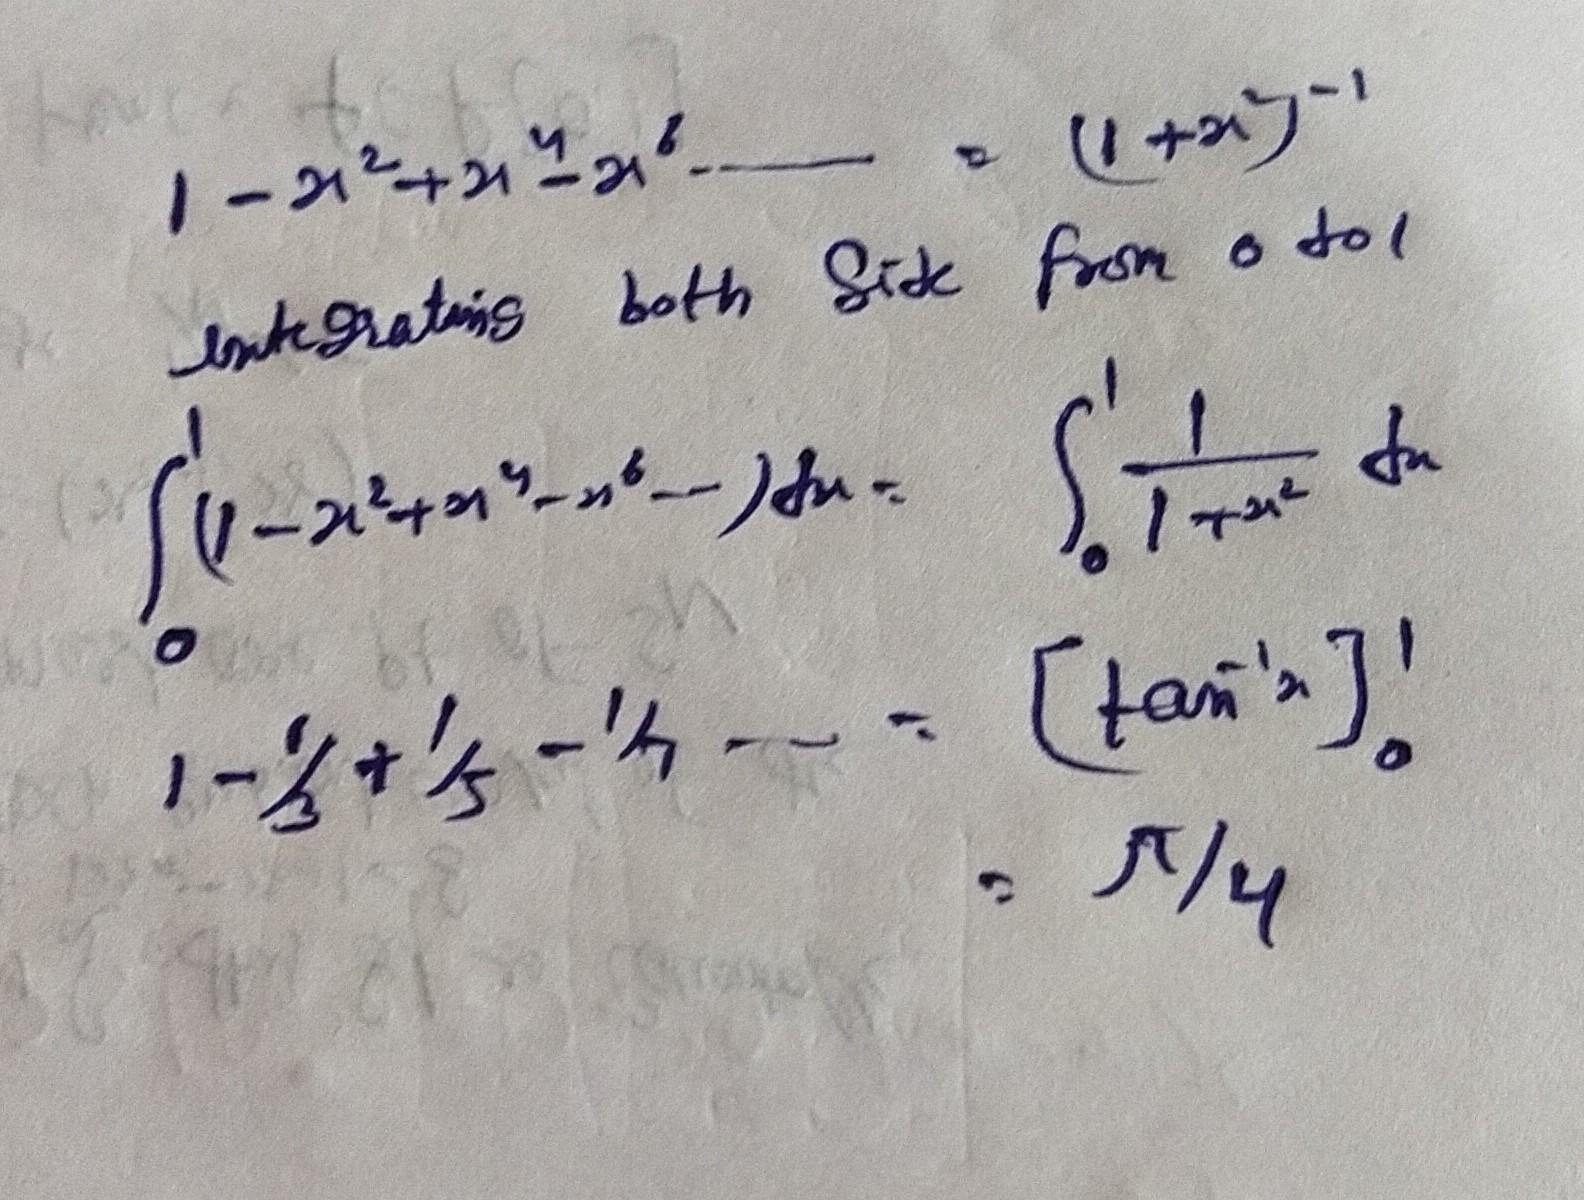 1 - x² + x⁴ - x⁶ - —— = (1 + x²)⁻¹
integrating both Side from 0 to 1
∫₀¹ (1 - x² + x⁴ - x⁶ - --) dx = ∫₀¹ 1/(1 + x²) dx
1 - 1/3 + 1/5 - 1/7 -- — = [tan⁻¹x]₀¹
= π/4